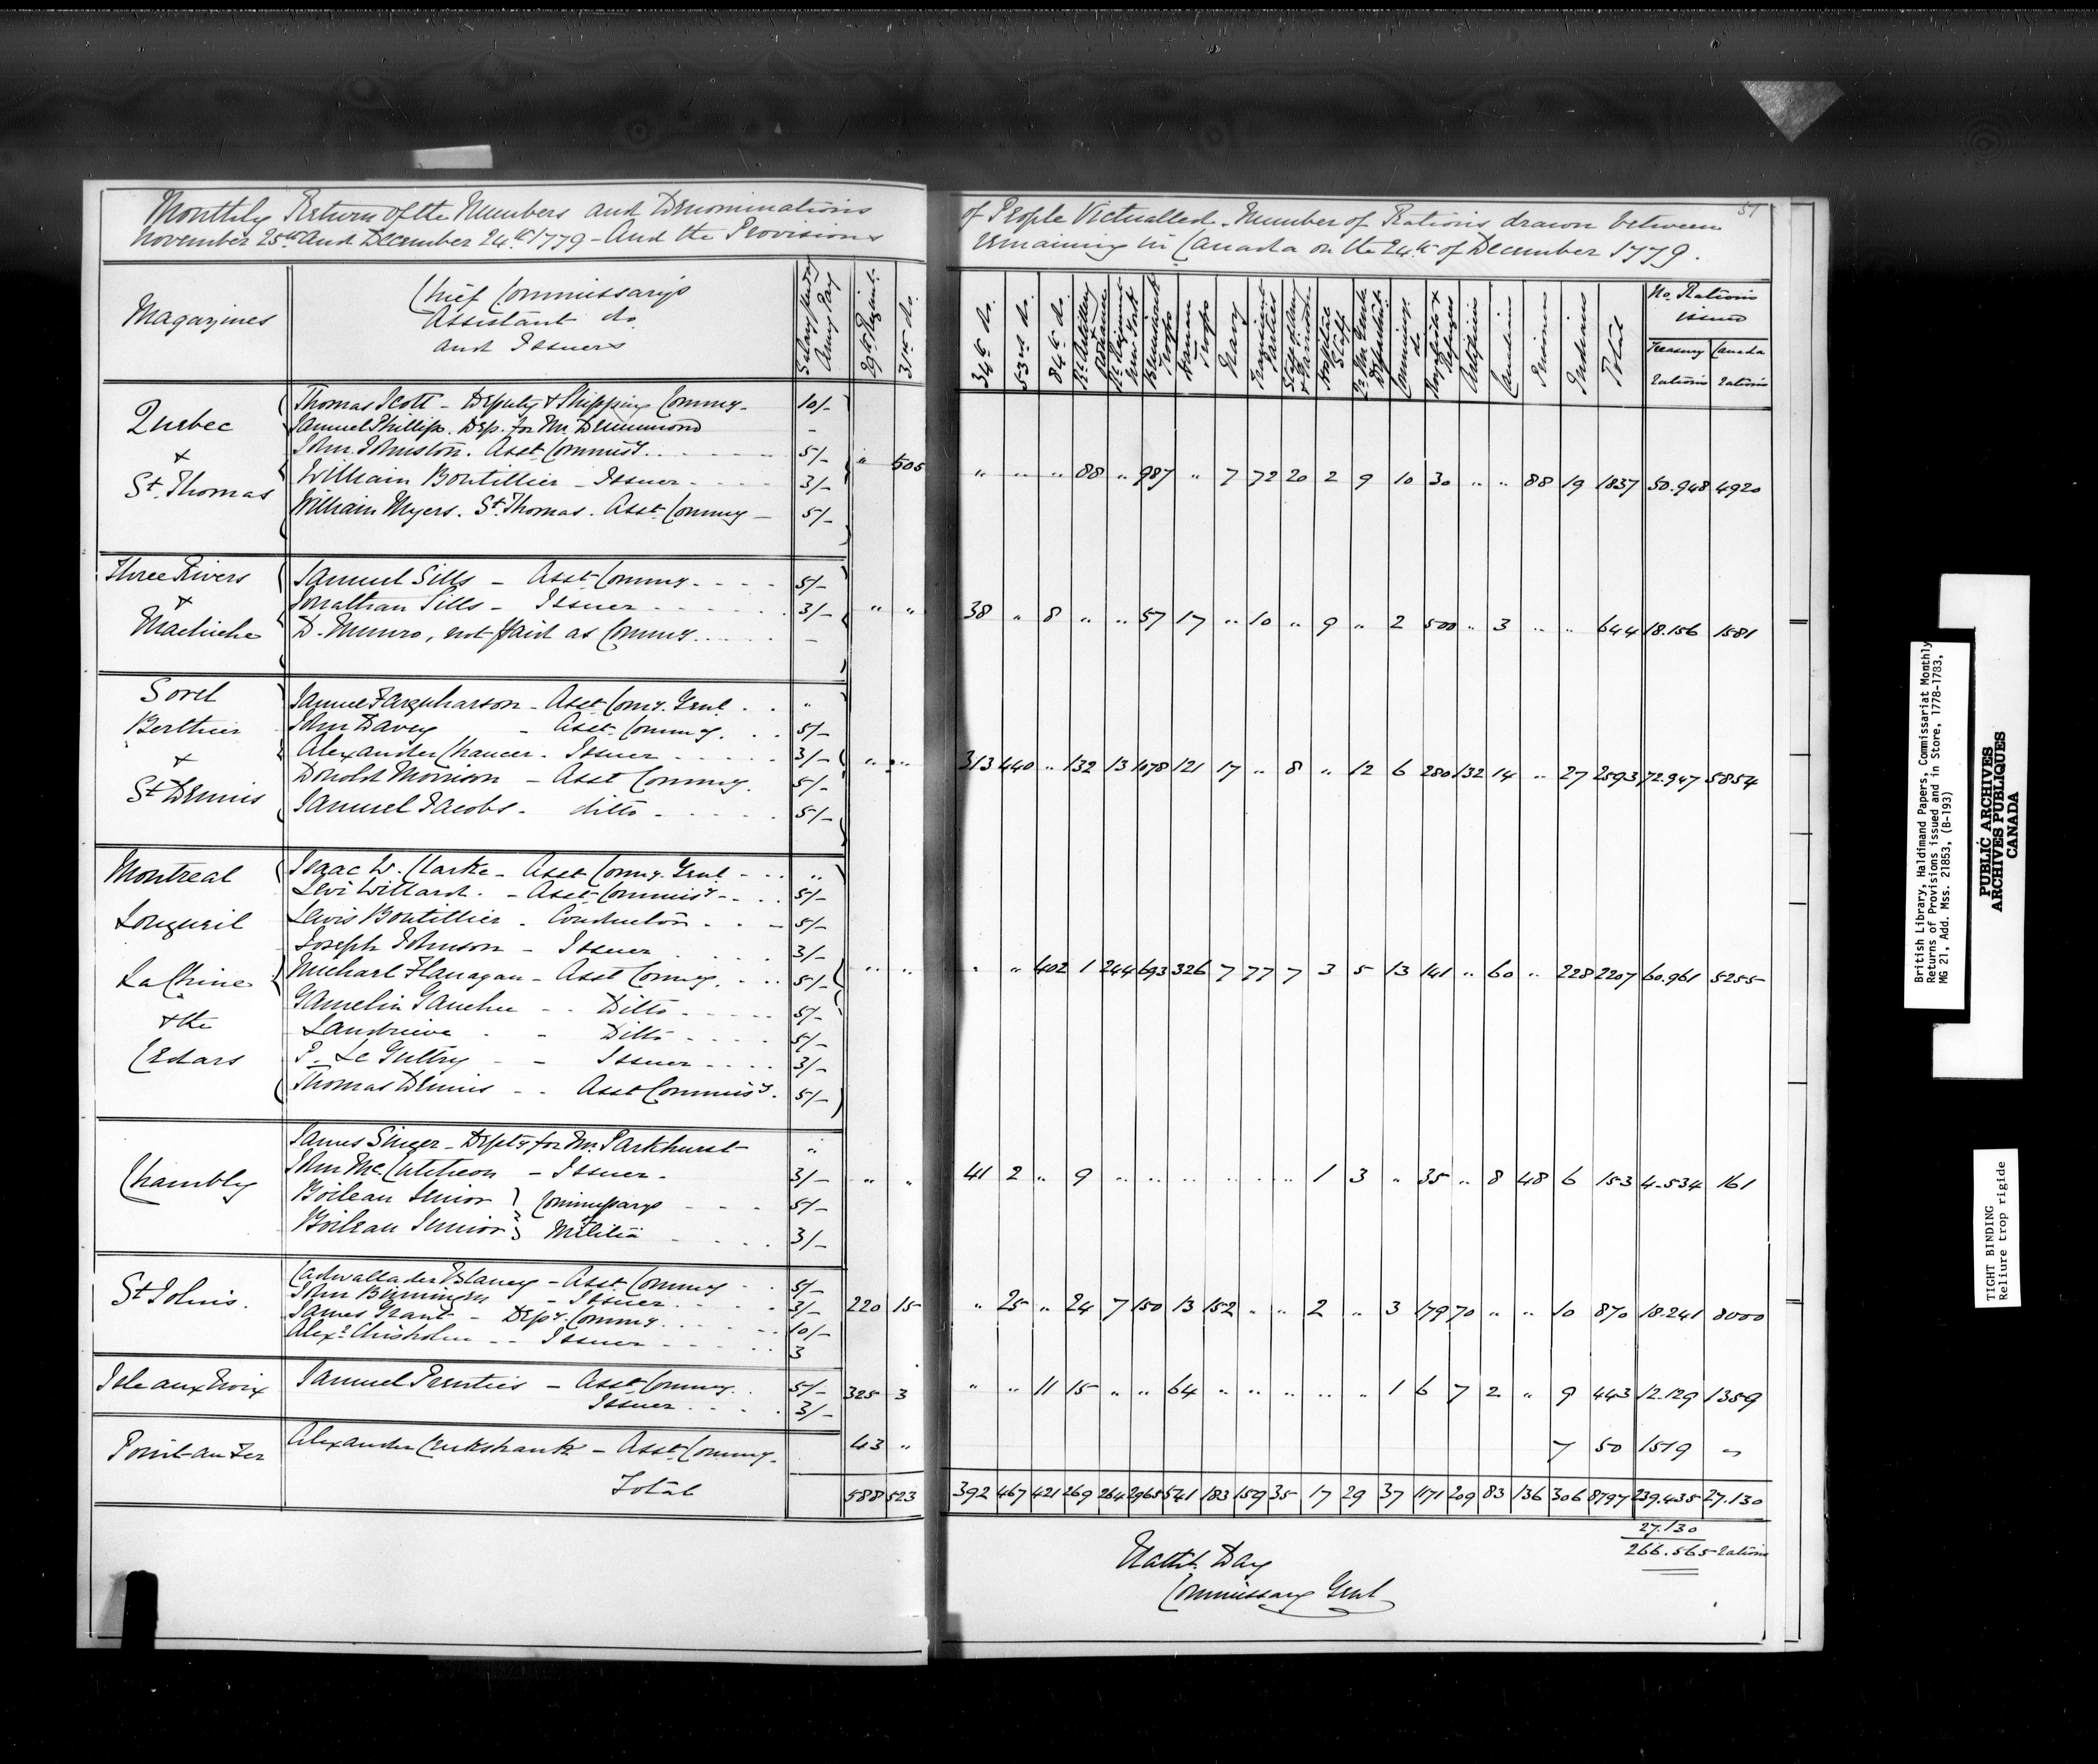 Monthly Return of the Numbers and Denominations of People Victualled - Number of Rations drawn between
November 25th and December 24th 1779 - And the Provisions remaining in Canada on the 24th of December 1779.
51
Magazines
Chief Commissarys
Assistant do.
and Issuers
Salary Army Pay
29th Regimt.
31st do.
34th do.
53rd do.
84th do.
Rl. Artillery
Rl. Regiment New York
Brunswick Troops
Hanau Troops
Navy
Provincial Parties
Staff Army & Garrison
Hospital Staff
Qr. Mr. Genls Departmt.
Commissys. do
Royalists & Refugees
Artificers
Canadians
Prisoners
Indians
Total
No. Rations issued
Treasury rations
Canada rations
Quebec & St. Thomas
Thomas Scott - Deputy & Shipping Commy. 10/-
Samuel Phillips. Dep. for Mr. Drummond -
John Johnston. Asst. Commissy. 5/-
William Boutillier - Issuer 3/-
William Myers. St. Thomas. Asst. Commy - 5/-
" 505 " " " 88 " 987 " 7 72 20 2 9 10 30 " " 88 19 1837 50.948 4920
Three Rivers & Machiche
Samuel Sills - Asst. Commy. 5/-
Jonathan Sills - Issuer 3/-
D. Munro, not paid as Commy. -
" " 38 " 8 " " 57 17 " 10 " 9 " 2 500 " 3 " " 644 18.156 1581
Sorel Berthier & St. Dennis
James Farquharson - Asst. Comy. Genl. "
John Davey - Asst. Commy. 5/-
Alexander Chancer - Issuer 3/-
Donold Morrison - Asst. Commy. 5/-
Samuel Jacobs - ditto 5/-
" " 313 440 " 132 13 1078 121 17 " 8 " 12 6 280 132 14 " 27 2593 72.947 5854
Montreal Longueil La Chine & the Cedars
Isaac W. Clarke - Asst. Comy. Genl "
Levi Willard. - Asst. Commissy. 5/-
Lewis Boutillier - Conductor 5/-
Joseph Johnson - Issuer 3/-
Michael Flanagan - Asst. Commy. 5/-
Gamelin Gauchee - Ditto 5/-
Landrieve - Ditto 5/-
P. Le Gultry - Issuer 3/-
Thomas Dennis - Asst. Commissy. 5/-
" " " " 402 1 244 693 326 7 77 7 3 5 13 141 " 60 " 228 2207 60.961 5255
Chambly
James Singer - Depty for Mr. Parkhurst "
John McCutcheon - Issuer. 3/-
Boileau Senior } Commissarys 5/-
Boileau Junior } of Militia 3/-
" " 41 2 " 9 " " " " " " 1 3 " 35 " 8 48 6 153 4.534 161
St. Johns.
Cadwallader Blaney - Asst. Commy 5/-
John Birmingm - Issuer 3/-
James Grant - Depy. Commy. 10/-
Alexr. Chisholm - Issuer 3
220 15 " 25 " 24 7 150 13 152 " " 2 " 3 179 70 " " 10 870 18.241 8000
Isle aux Noix
Samuel Prenties - Asst. Commy. 5/-
Issuer 3/-
325 3 " " 11 15 " " 64 " " " " " 1 6 7 2 " 9 443 12.129 1359
Point au Fer
Alexander Cruikshank - Asst. Commy.
43 " 7 50 1519 "
Total 588 523 392 467 421 269 264 2965 541 183 159 35 17 29 37 1171 209 83 136 306 8797 239.435 27.130
27.130
266.565 rations
Nathl. Day
Commissary Genl
British Library, Haldimand Papers, Commissariat Monthly
Returns of Provisions issued and in Store, 1778-1783,
MG 21, Add. Mss. 21853, (B-193)
PUBLIC ARCHIVES
ARCHIVES PUBLIQUES
CANADA
TIGHT BINDING
Reliure trop rigide